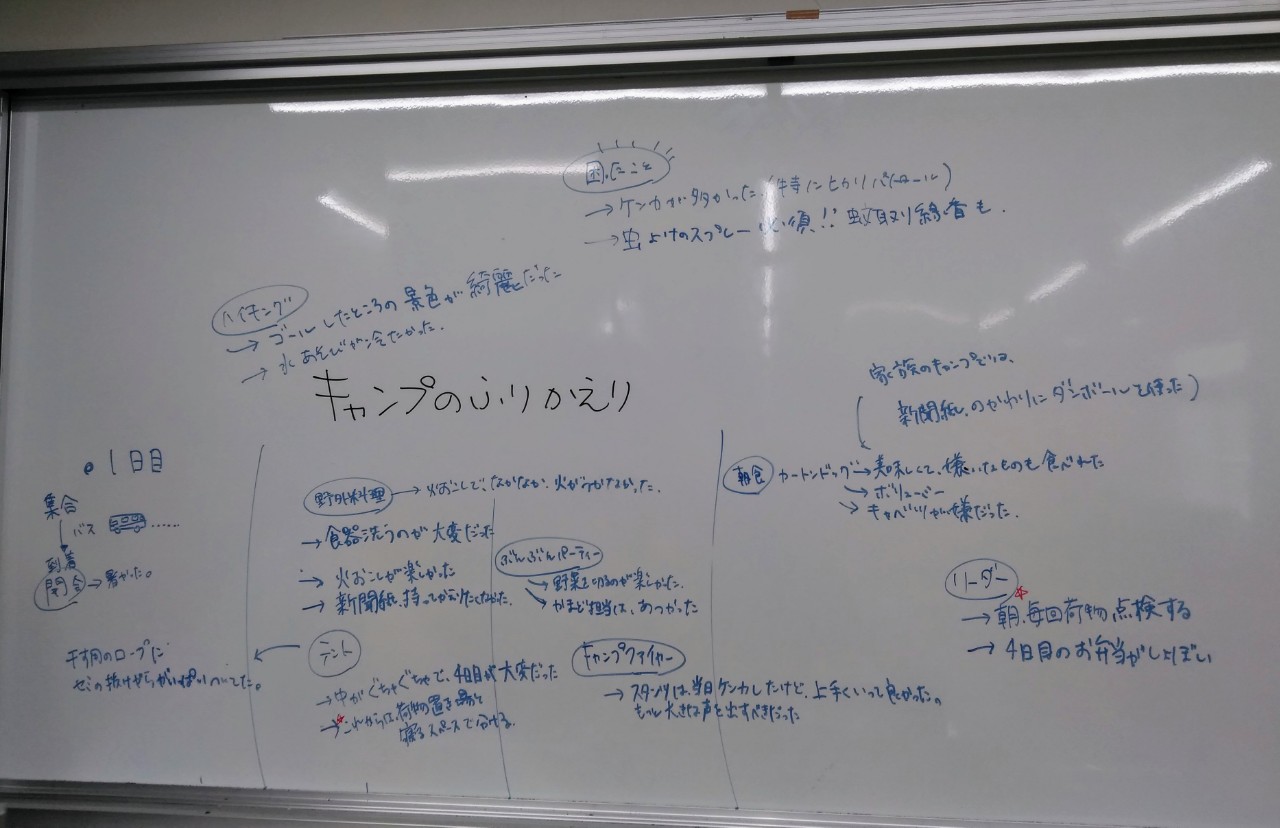 困ったこと
→ ケンカが多かった.(特にヒカリパトロール)
→ 虫よけのスプレー必須!! 蚊取り線香も.
ハイキング
→ ゴールしたところの景色が綺麗だった
→ 水あそびが冷たかった.
キャンプのふりかえり
家族のキャンプでは、
新聞紙のかわりにダンボールを使った)
・1日目
集合
バス ……
到着
開会 → 暑かった。
干す用のロープに
セミの抜けがらがいっぱいついてた。
野外料理 → 火おこしで、なかなか火がつかなかった.
→ 食器洗うのが大変だった
→ 火おこしが楽しかった
→ 新聞紙、持ってかえりたくなかった.
ぶんぶんパーティー
→ 野菜を切るのが楽しかった.
→ かまど担当は、あつかった
テント
→ 中がぐちゃぐちゃで、4日目が大変だった
→ これからは、荷物の置き場と
寝るスペースで分ける.
キャンプファイヤー
→ スタンツは、当日ケンカしたけど、上手くいって良かった。
もっと大きな声を出すべきだった
朝食 カートンドッグ → 美味しくて、嫌いなものも食べれた
→ ボリューミー
→ キャベツが嫌だった.
リーダー
→ 朝、毎回荷物点検する
→ 4日目のお弁当がしょぼい